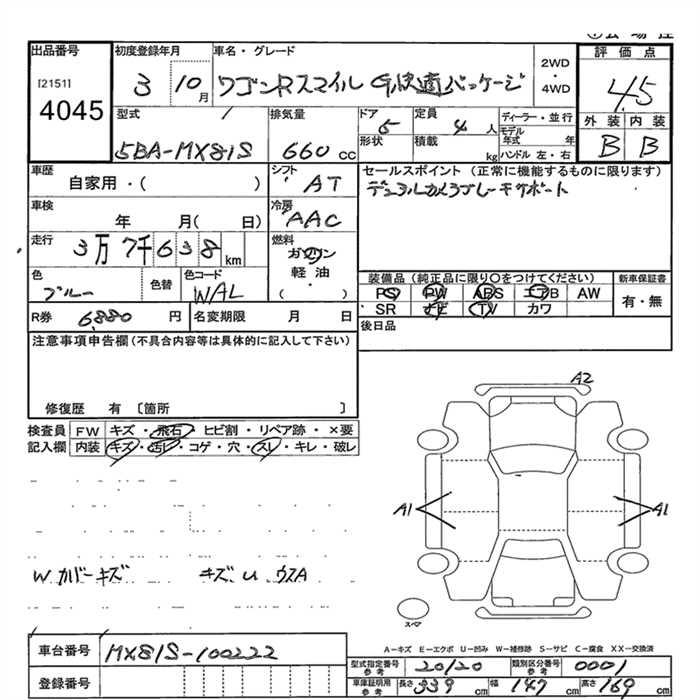 出品番号 初度登録年月 車名・グレード 評価点
[2151] 3 10月 ワゴンRスマイル G快適パッケージ 2WD・4WD 4.5
4045
型式 排気量 ドア 5 定員 4人 ディーラー・並行 外装 内装
5BA-MX81S 660cc 形状 積載 kg モデル年式 年 B B
ハンドル 左・右
車歴 自家用・( ) シフト AT セールスポイント(正常に機能するものに限ります)
デュアルカメラブレーキサポート
車検 年 月( 日) 冷房 AAC
走行 3万7千638km 燃料 ガソリン 軽油・( )
色 ブルー 色替 色コード WAL 装備品(純正品に限り〇をつけてください) 新車保証書
PS PW ABS エアB AW 有・無
SR ナビ TV カワ
R券 6,880円 名変期限 月 日 後日品
注意事項申告欄(不具合内容等は具体的に記入して下さい)
修復歴 有 〔箇所 〕
検査員 FW キズ・飛石・ヒビ割・リペア跡・×要
記入欄 内装 キズ・汚レ・コゲ・穴・スレ・キレ・破レ
A2
A1 A1
Wカバーキズ キズ U ウスA
スペア
A-キズ E-エクボ U-凹み W-補修跡 S-サビ C-腐食 XX-交換済
車台番号 MX81S-100222
型式指定番号 参考 20120 類別区分番号 参考 0001
登録番号
車庫証明用 参考 長さ 339cm 幅 147cm 高さ 169cm